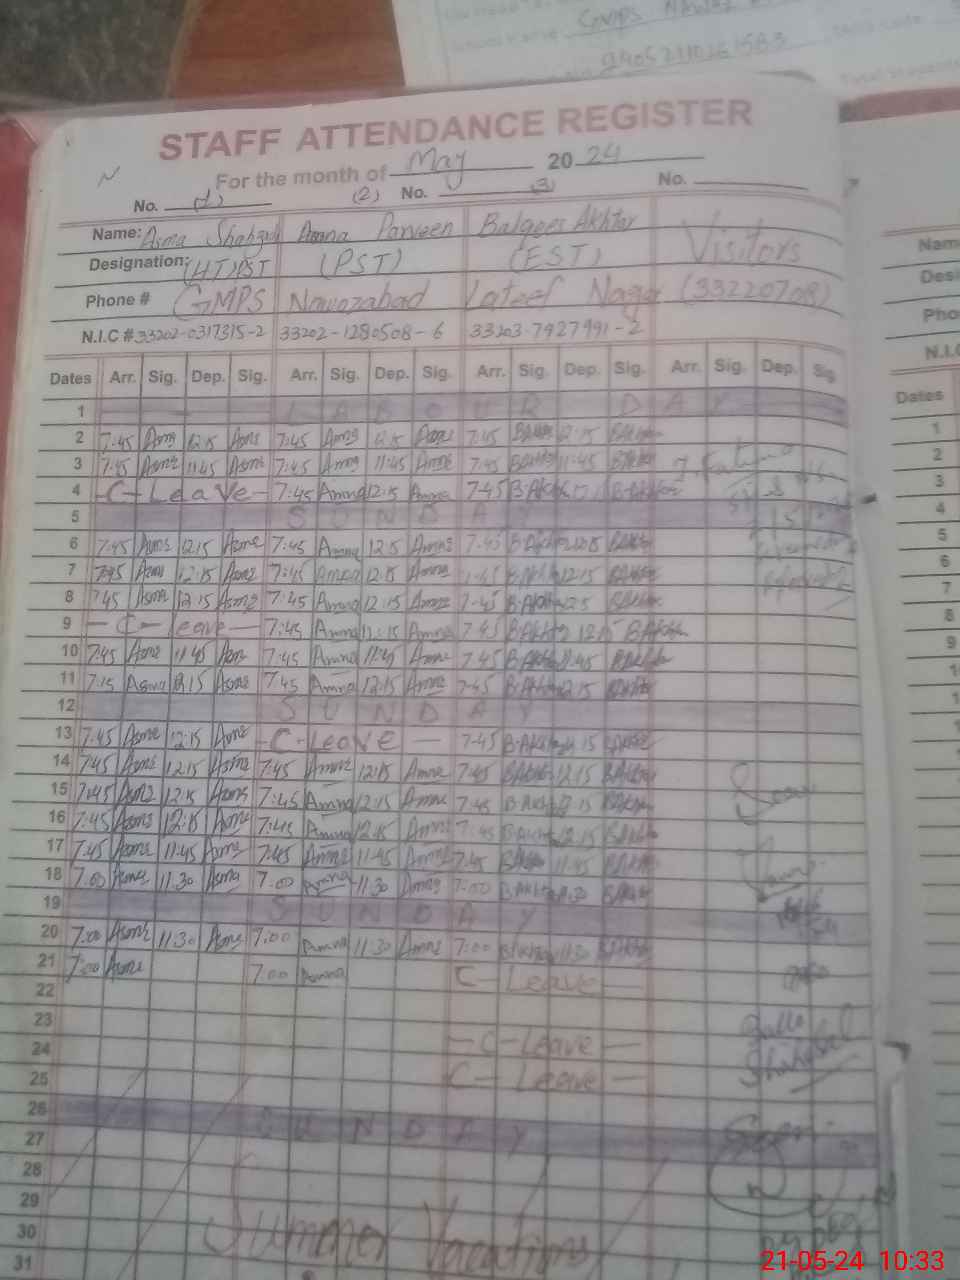 GMPS
STAFF ATTENDANCE REGISTER
For the month of May 2024
No. (1) (2) No. (3) No.
Name: Asma Shahzadi Amna Parveen Balqees Akhtar Visitors
Designation: (HT)PST (PST) (EST)
Phone # GMPS Nawazabad Lateef Nagar (33220708)
N.I.C # 33202-0317315-2 33202-1280508-6 33203-7927991-2
Dates Arr. Sig. Dep. Sig. Arr. Sig. Dep. Sig. Arr. Sig. Dep. Sig. Arr. Sig. Dep. Sig
1 LABOUR DAY
2 7:45 Asma 12:15 Asma 7:45 Amna 12:15 Amna 7:45 BAkhtar 12:15 BAkhtar
3 7:45 Asma 11:45 Asma 7:45 Amna 11:45 Amna 7:45 BAkhtar 11:45 BAkhtar
4 -C-Leave- 7:45 Amna 12:15 Amna 7-45 B-Akhtar B-Akhtar
5 SUNDAY
6 7:45 Asma 12:15 Asma 7:45 Amna 12:15 Amna 7-45 B-Akhtar 12:15 BAkhtar
7 7:45 Asma 12:15 Asma 7:45 Amna 12:15 Amna B-Akhtar 12:15 BAkhtar
8 7:45 Asma 12:15 Asma 7:45 Amna 12:15 Amna 7-45 B-Akhtar BAkhtar
9 -C-leave- 7:45 Amna Amna 7:45 BAkhtar 12:15 B-Akhtar
10 7:45 Asma 11:45 Asma 7:45 Amna 11:45 Amna 7:45 B-Akhtar 11:45 BAkhtar
11 Asma 12:15 Asma 7:45 Amna 12:15 Amna 7-45 B-Akhtar 12:15 BAkhtar
12 SUNDAY
13 7:45 Asma 12:15 Asma -C-Leave- 7-45 B-Akhtar BAkhtar
14 7:45 Asma 12:15 Asma 7:45 Amna 12:15 Amna 7:45 BAkhtar 12:15 BAkhtar
15 7:45 Asma 12:15 Asma 7:45 Amna 12:15 Amna 7:45 B-Akhtar 12:15 BAkhtar
16 7:45 Asma 12:15 Asma 7:45 Amna 12:15 Amna 7:45 B-Akhtar 12:15 BAkhtar
17 7:45 Asma 11:45 Asma 7:45 Amna 11:45 Amna 7:45 BAkhtar 11:45 BAkhtar
18 7:00 Asma 11:30 Asma 7:00 Amna 11:30 Amna 7:00 BAkhtar 11:30 BAkhtar
19 SUNDAY
20 7:00 Asma 11:30 Asma 7:00 Amna 11:30 Amna 7:00 BAkhtar 11:30 BAkhtar
21 7:00 Asma 7:00 Amna C-Leave-
22
23
24 -C-Leave-
25 C-Leave-
26 SUNDAY
27
28
29
30 Summer Vacations
31
21-05-24 10:33
Dates
1
2
3
4
5
6
7
8
9
10
11
12
13
14
15
16
17